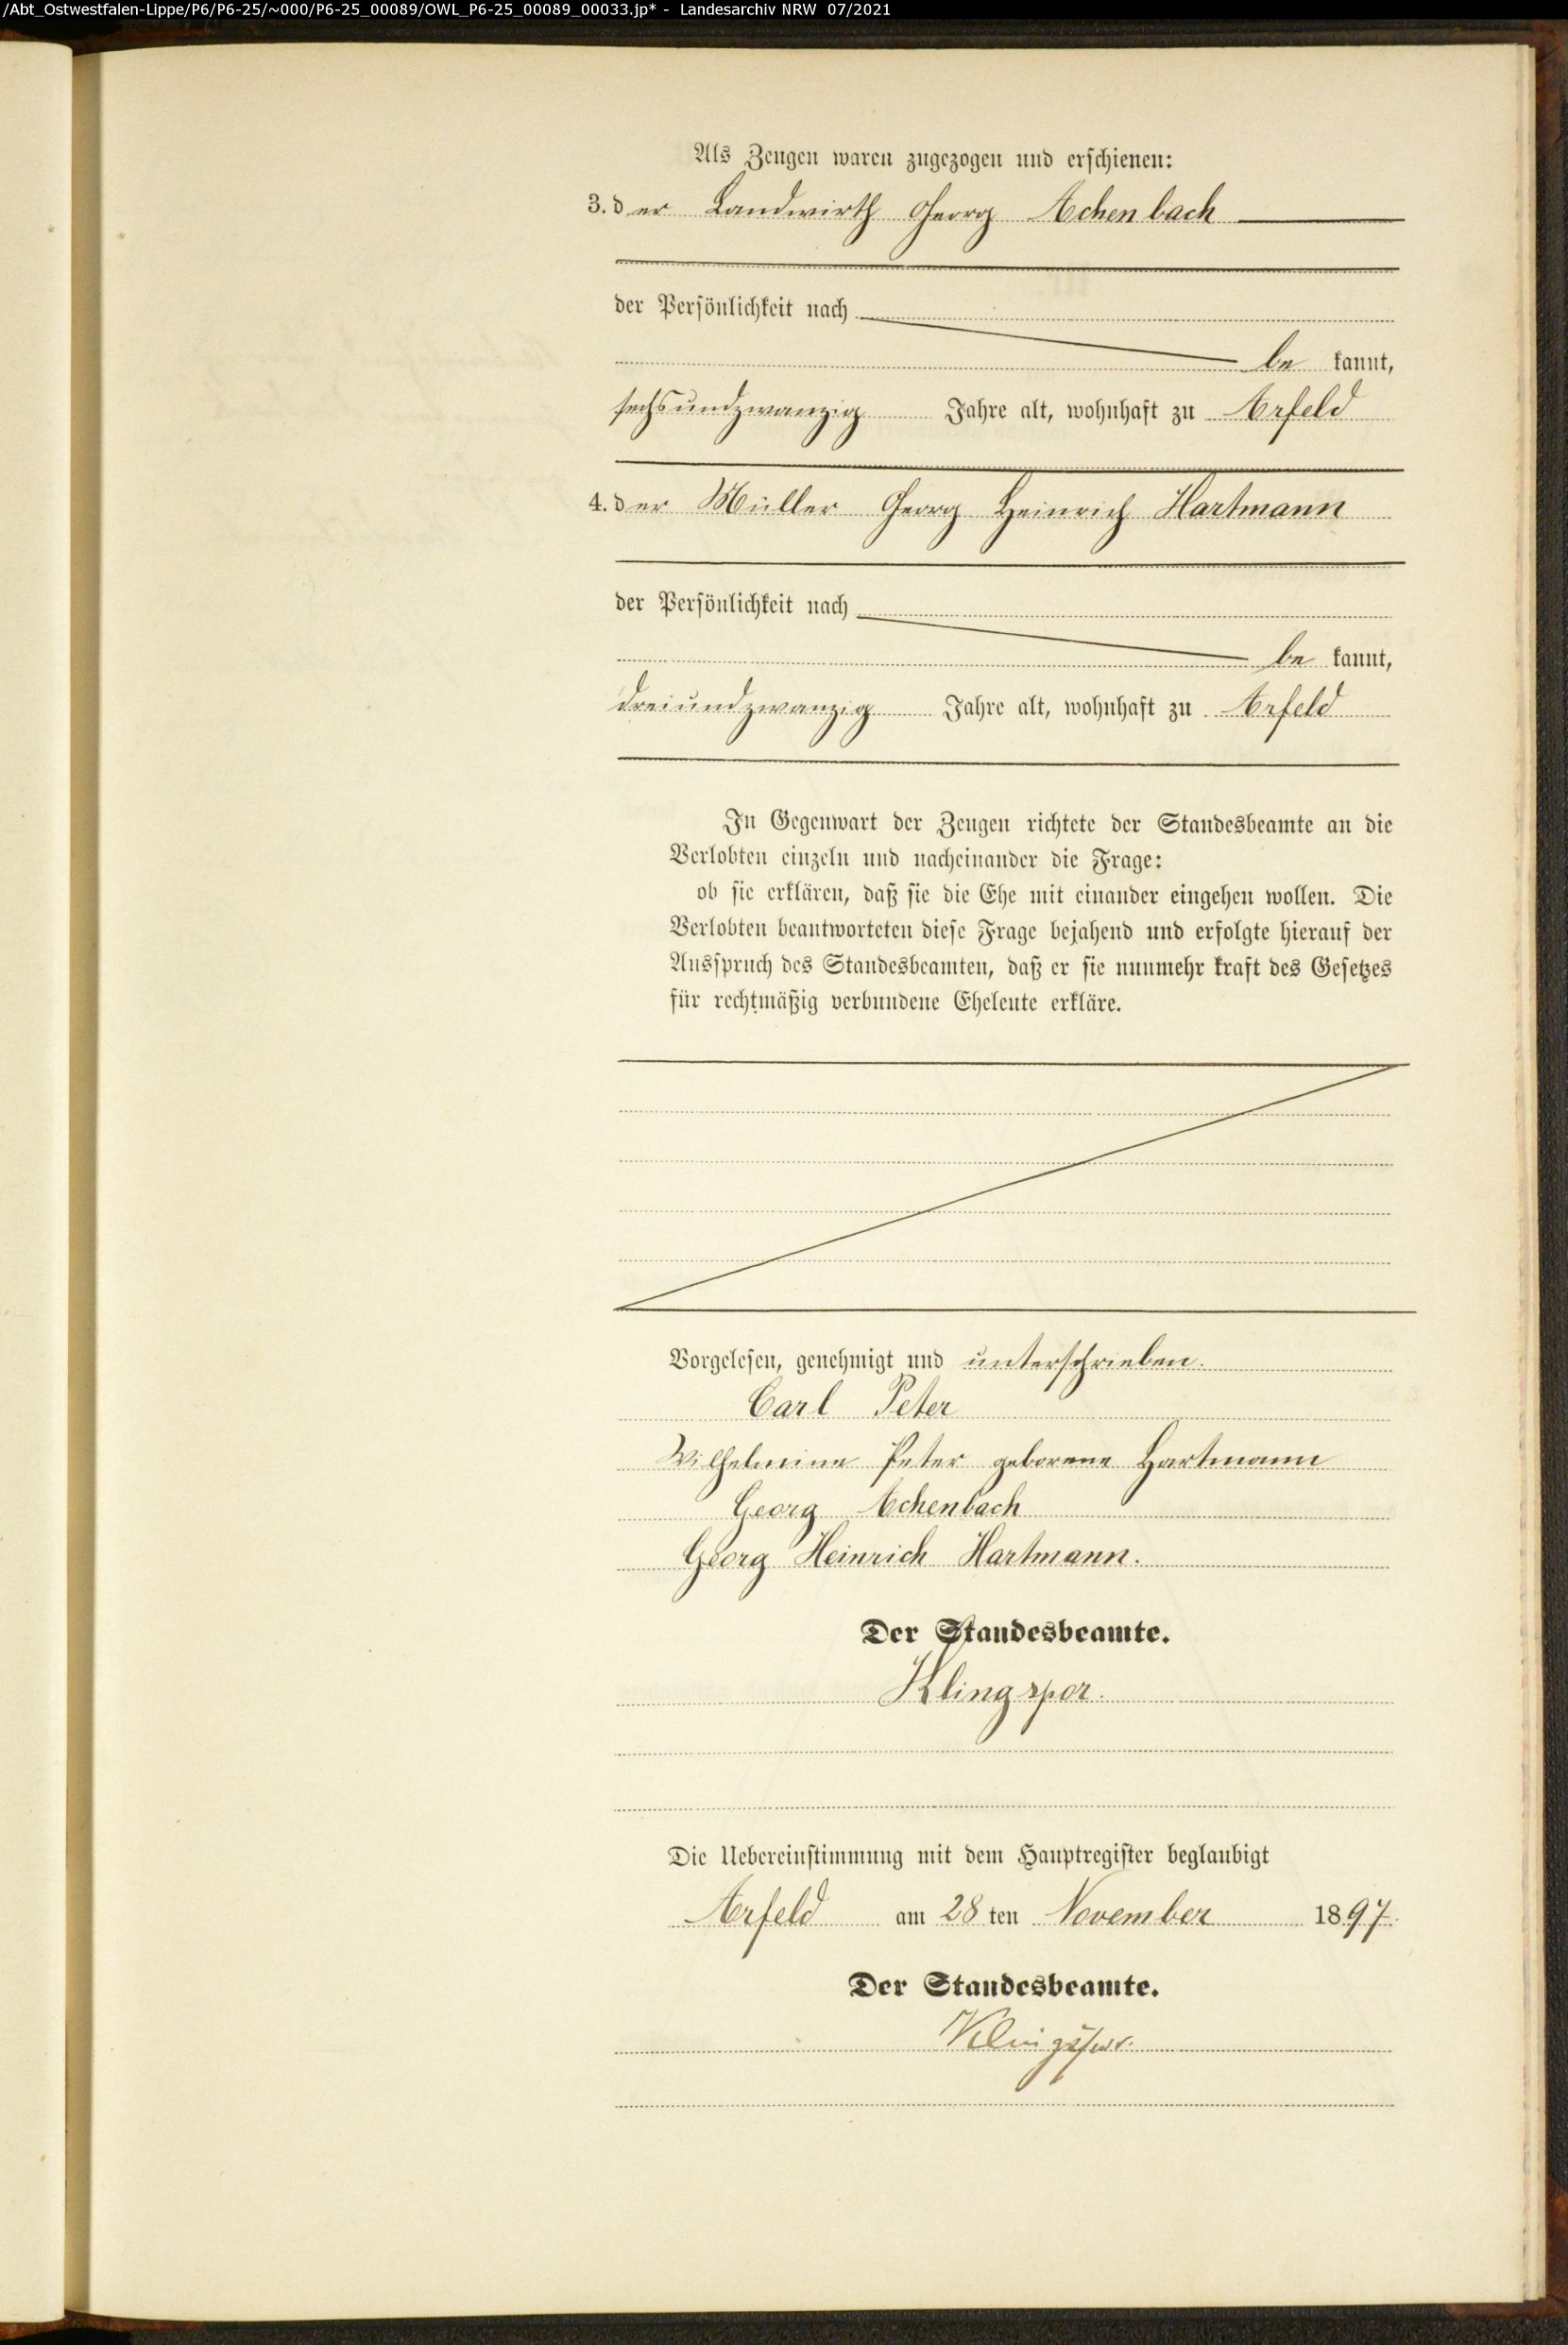 /Abt_Ostwestfalen-Lippe/P6/P6-25/~000/P6-25_00089/OWL_P6-25_00089_00033.jp* - Landesarchiv NRW 07/2021
Als Zeugen waren zugezogen und erschienen:
3. der Landwirth Georg Achenbach
der Persönlichkeit nach
be kannt,
sechsundzwanzig Jahre alt, wohnhaft zu Arfeld
4. der Müller Georg Heinrich Hartmann
der Persönlichkeit nach
be kannt,
dreiundzwanzig Jahre alt, wohnhaft zu Arfeld
In Gegenwart der Zeugen richtete der Standesbeamte an die
Verlobten einzeln und nacheinander die Frage:
ob sie erklären, daß sie die Ehe mit einander eingehen wollen. Die
Verlobten beantworteten diese Frage bejahend und erfolgte hierauf der
Ausspruch des Standesbeamten, daß er sie nunmehr kraft des Gesetzes
für rechtmäßig verbundene Eheleute erkläre.
Vorgelesen, genehmigt und unterschrieben.
Carl Peter
Wilhelmine Peter geborene Hartmann
Georg Achenbach
Georg Heinrich Hartmann.
Der Standesbeamte.
Klingspor.
Die Uebereinstimmung mit dem Hauptregister beglaubigt
Arfeld am 28 ten November 1897.
Der Standesbeamte.
Klingspor.